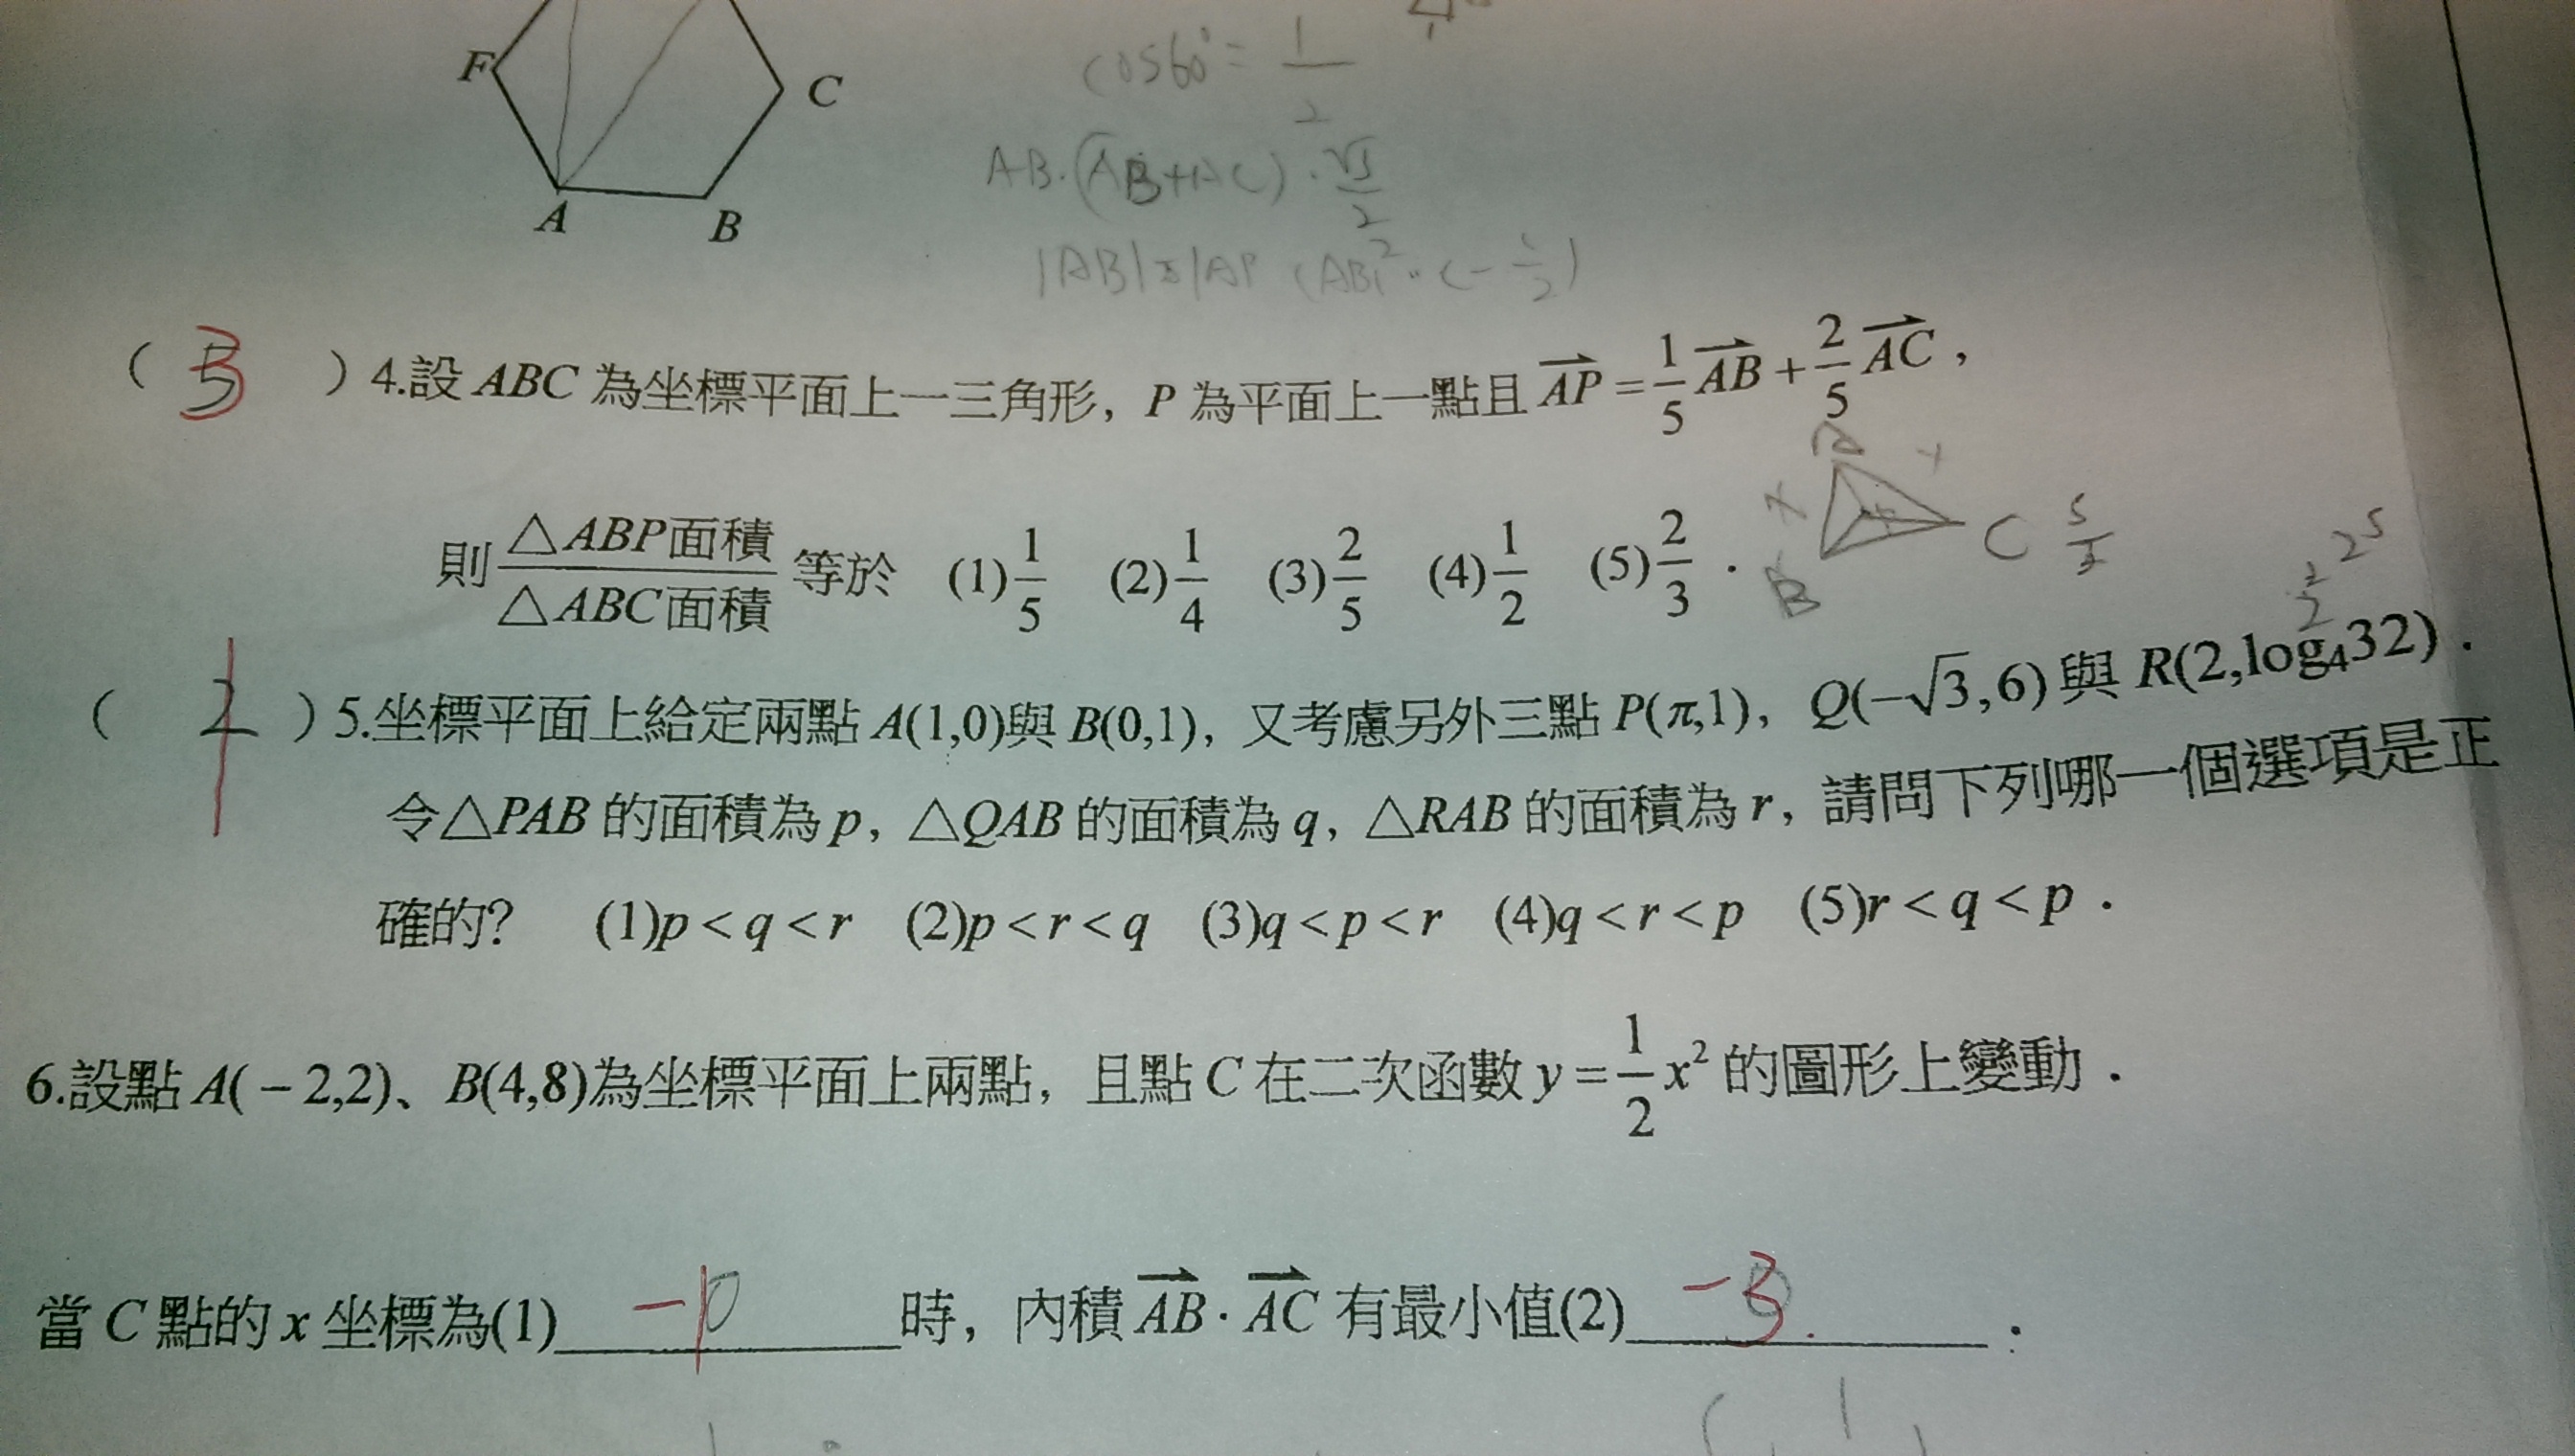 F
C
A
B
cos60°=1/2
AB·(AB+AC)·
( 3 )4.設 ABC 為坐標平面上一三角形，P 為平面上一點且 AP = 1/5 AB + 2/5 AC，
B
C
則 △ABP面積/△ABC面積 等於 (1)1/5 (2)1/4 (3)2/5 (4)1/2 (5)2/3．
2^5
( 1 )5.坐標平面上給定兩點 A(1,0)與 B(0,1)，又考慮另外三點 P(π,1)，Q(−√3,6)與 R(2,log₄32)．
令△PAB 的面積為 p，△QAB 的面積為 q，△RAB 的面積為 r，請問下列哪一個選項是正
確的? (1)p<q<r (2)p<r<q (3)q<p<r (4)q<r<p (5)r<q<p．
6.設點 A(−2,2)、B(4,8)為坐標平面上兩點，且點 C 在二次函數 y = 1/2 x² 的圖形上變動．
當 C 點的 x 坐標為(1) −1 時，內積 AB·AC 有最小值(2) −3．